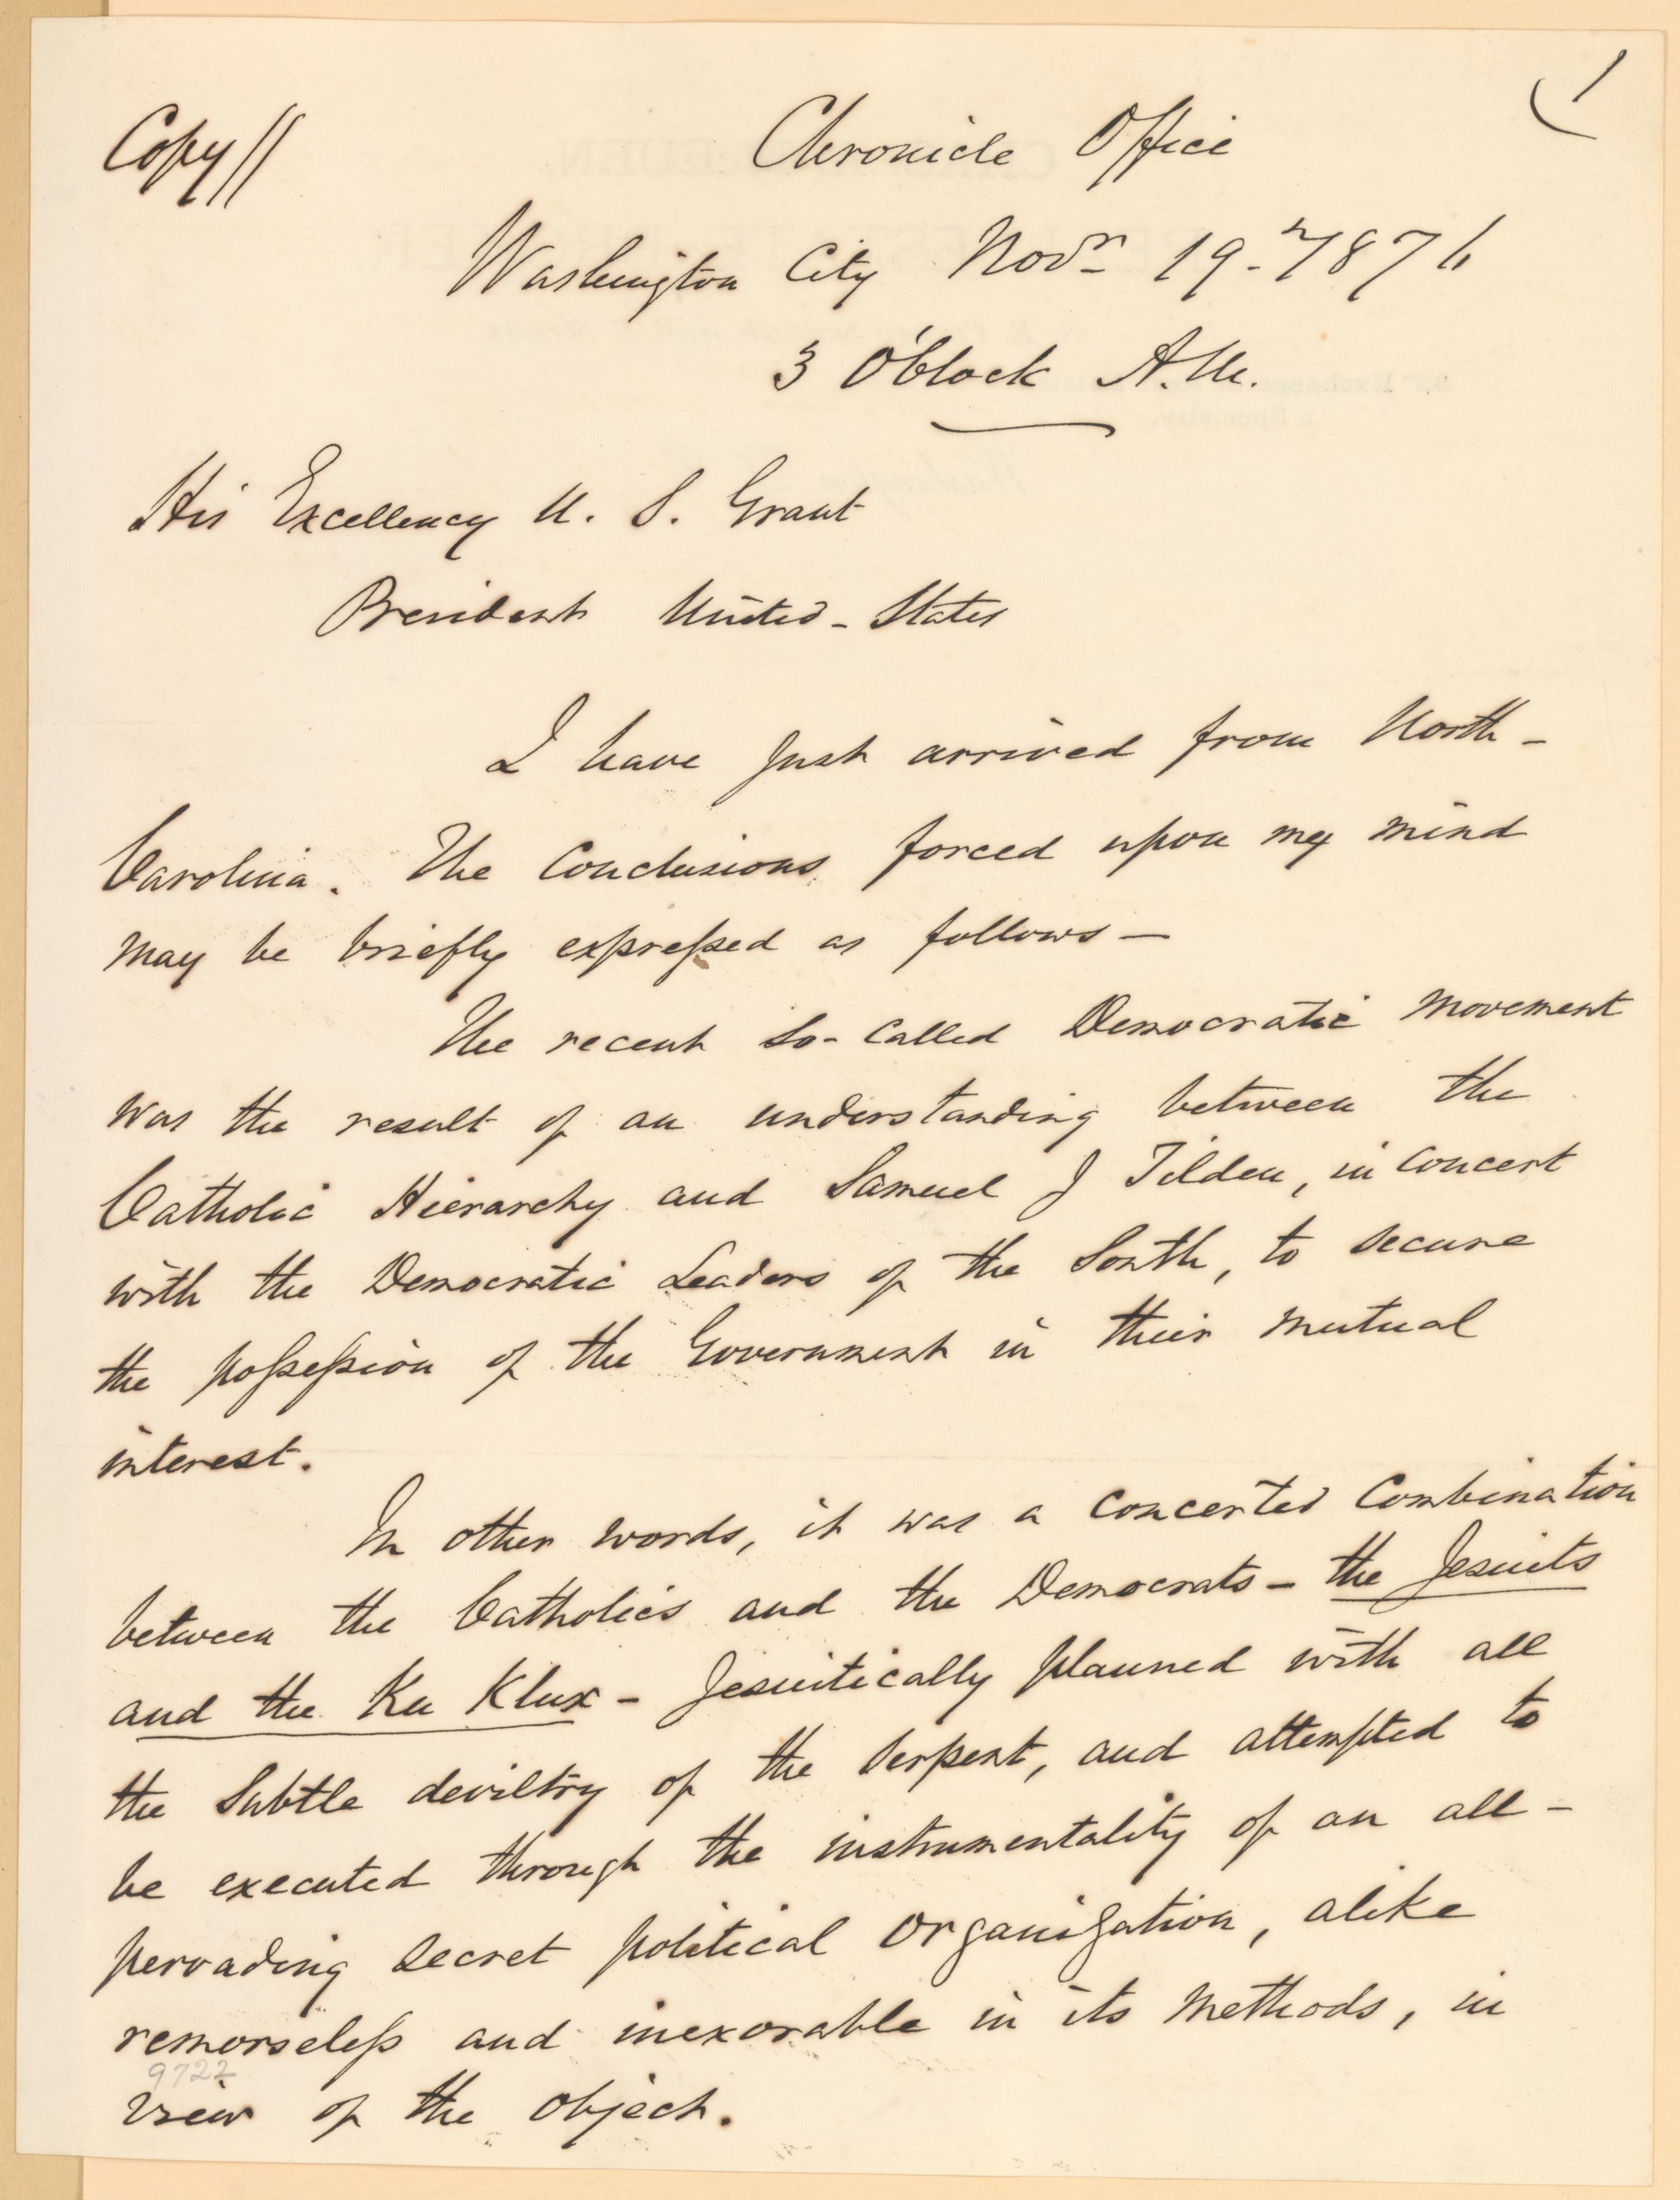 1
Copy//
Chronicle Office
Washington City Novr 19. 1876
3 O'Clock A.M.
His Excellency U. S. Grant
President United-States
I have just arrived from North-
Carolina. The Conclusions forced upon my mind
may be briefly expressed as follows—
The recent so-called Democratic movement
was the result of an understanding between the
Catholic Hierarchy and Samuel J Tilden, in Concert
with the Democratic Leaders of the South, to secure
the possession of the Government in their mutual
interest.
In other words, it was a concerted Combination
between the Catholics and the Democrats- the Jesuits
and the Ku Klux- Jesuitically planned with all
the subtle deviltry of the serpent, and attempted to
be executed through the instrumentality of an all-
pervading secret political organization, alike
remorseless and inexorable in its methods, in
9722
view of the object.